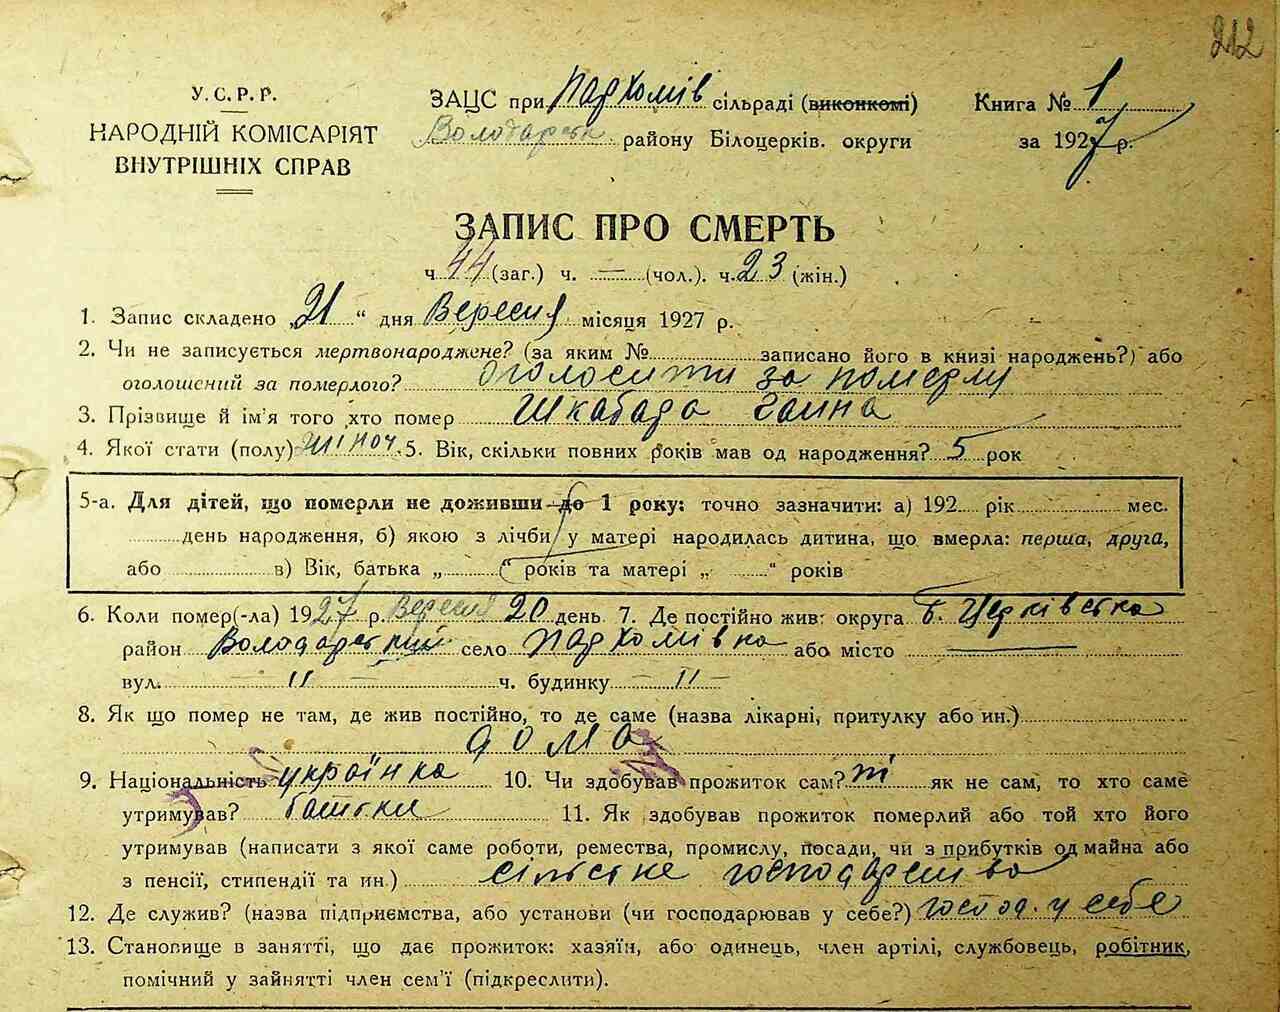 212
У.С.Р.Р.
НАРОДНІЙ КОМІСАРІЯТ
ВНУТРІШНІХ СПРАВ
ЗАЦС при Пархомів сільраді (виконкомі)
Володарськ. району Білоцерків. округи
Книга № 1
за 1927 р.
ЗАПИС ПРО СМЕРТЬ
ч 44 (заг.) ч. — (чол.). ч. 23 (жін.)
1. Запис складено „21“ дня Вересня місяця 1927 р.
2. Чи не записується мертвонароджене? (за яким №..........записано його в книзі народжень?) або
оголошений за померлого? оголосити за померлу
3. Прізвище й ім'я того хто помер Шкабара Ганна
4. Якої стати (полу) жіноч. 5. Вік, скільки повних років мав од народження? 5 рок
5-а. Для дітей, що померли не доживши до 1 року: точно зазначити: а) 192.... рік.......... мес.
..........день народження, б) якою з лічби у матері народилась дитина, що вмерла: перша, друга,
або .......... в) Вік, батька „..........“ років та матері „..........“ років
6. Коли помер(-ла) 1927 р. Вересня 20 день 7. Де постійно жив: округа Б. Церківська
район Володарський село Пархомівка або місто —
вул. — " — ч. будинку — " —
8. Як що помер не там, де жив постійно, то де саме (назва лікарні, притулку або ин.)..........
дома
9. Національність українка 10. Чи здобував прожиток сам? ні як не сам, то хто саме
утримував? батьки 11. Як здобував прожиток померлий або той хто його
утримував (написати з якої саме роботи, ремества, промислу, посади, чи з прибутків од майна або
з пенсії, стипендії та ин.) сільське господарство
12. Де служив? (назва підприємства, або установи (чи господарював у себе?) господ. у себе
13. Становище в занятті, що дає прожиток: хазяїн, або одинець, член артілі, службовець, робітник,
помічний у зайнятті член сем'ї (підкреслити).